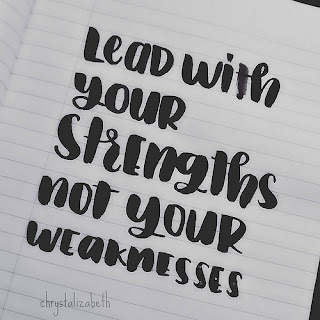 LEAD WITH
YOUR
STRENGTHS
NOT YOUR
WEAKNESSES
chrystalizabeth